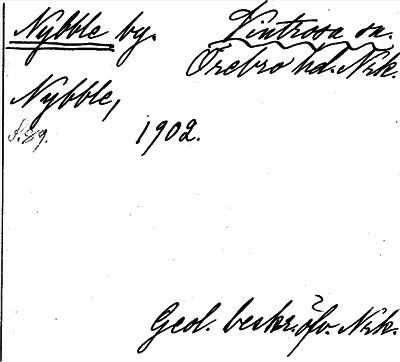 Nybble by. Vintrosa sn.
Örebro hd. Nrk.
Nybble,
S. 89. 1902.
Geol. beskr. öfv. Nrk.